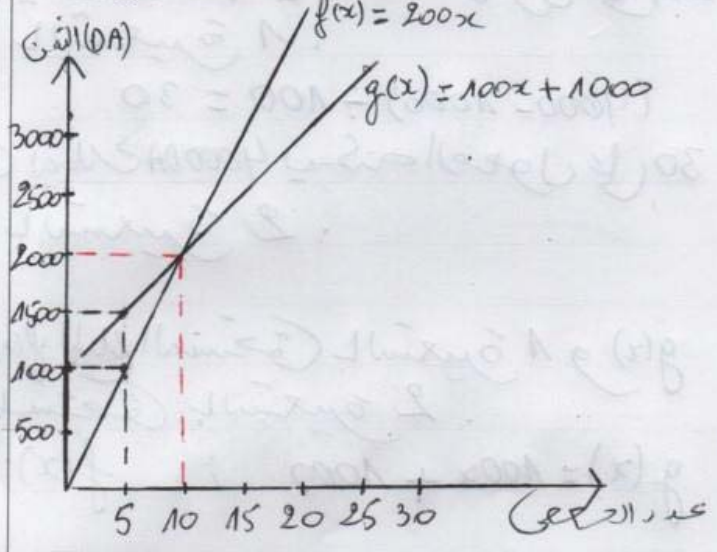 f(x) = 200x
الثمن (DA)
g(x) = 100x + 1000
3000
2500
2000
1500
1000
500
5 10 15 20 25 30
عدد الحصص